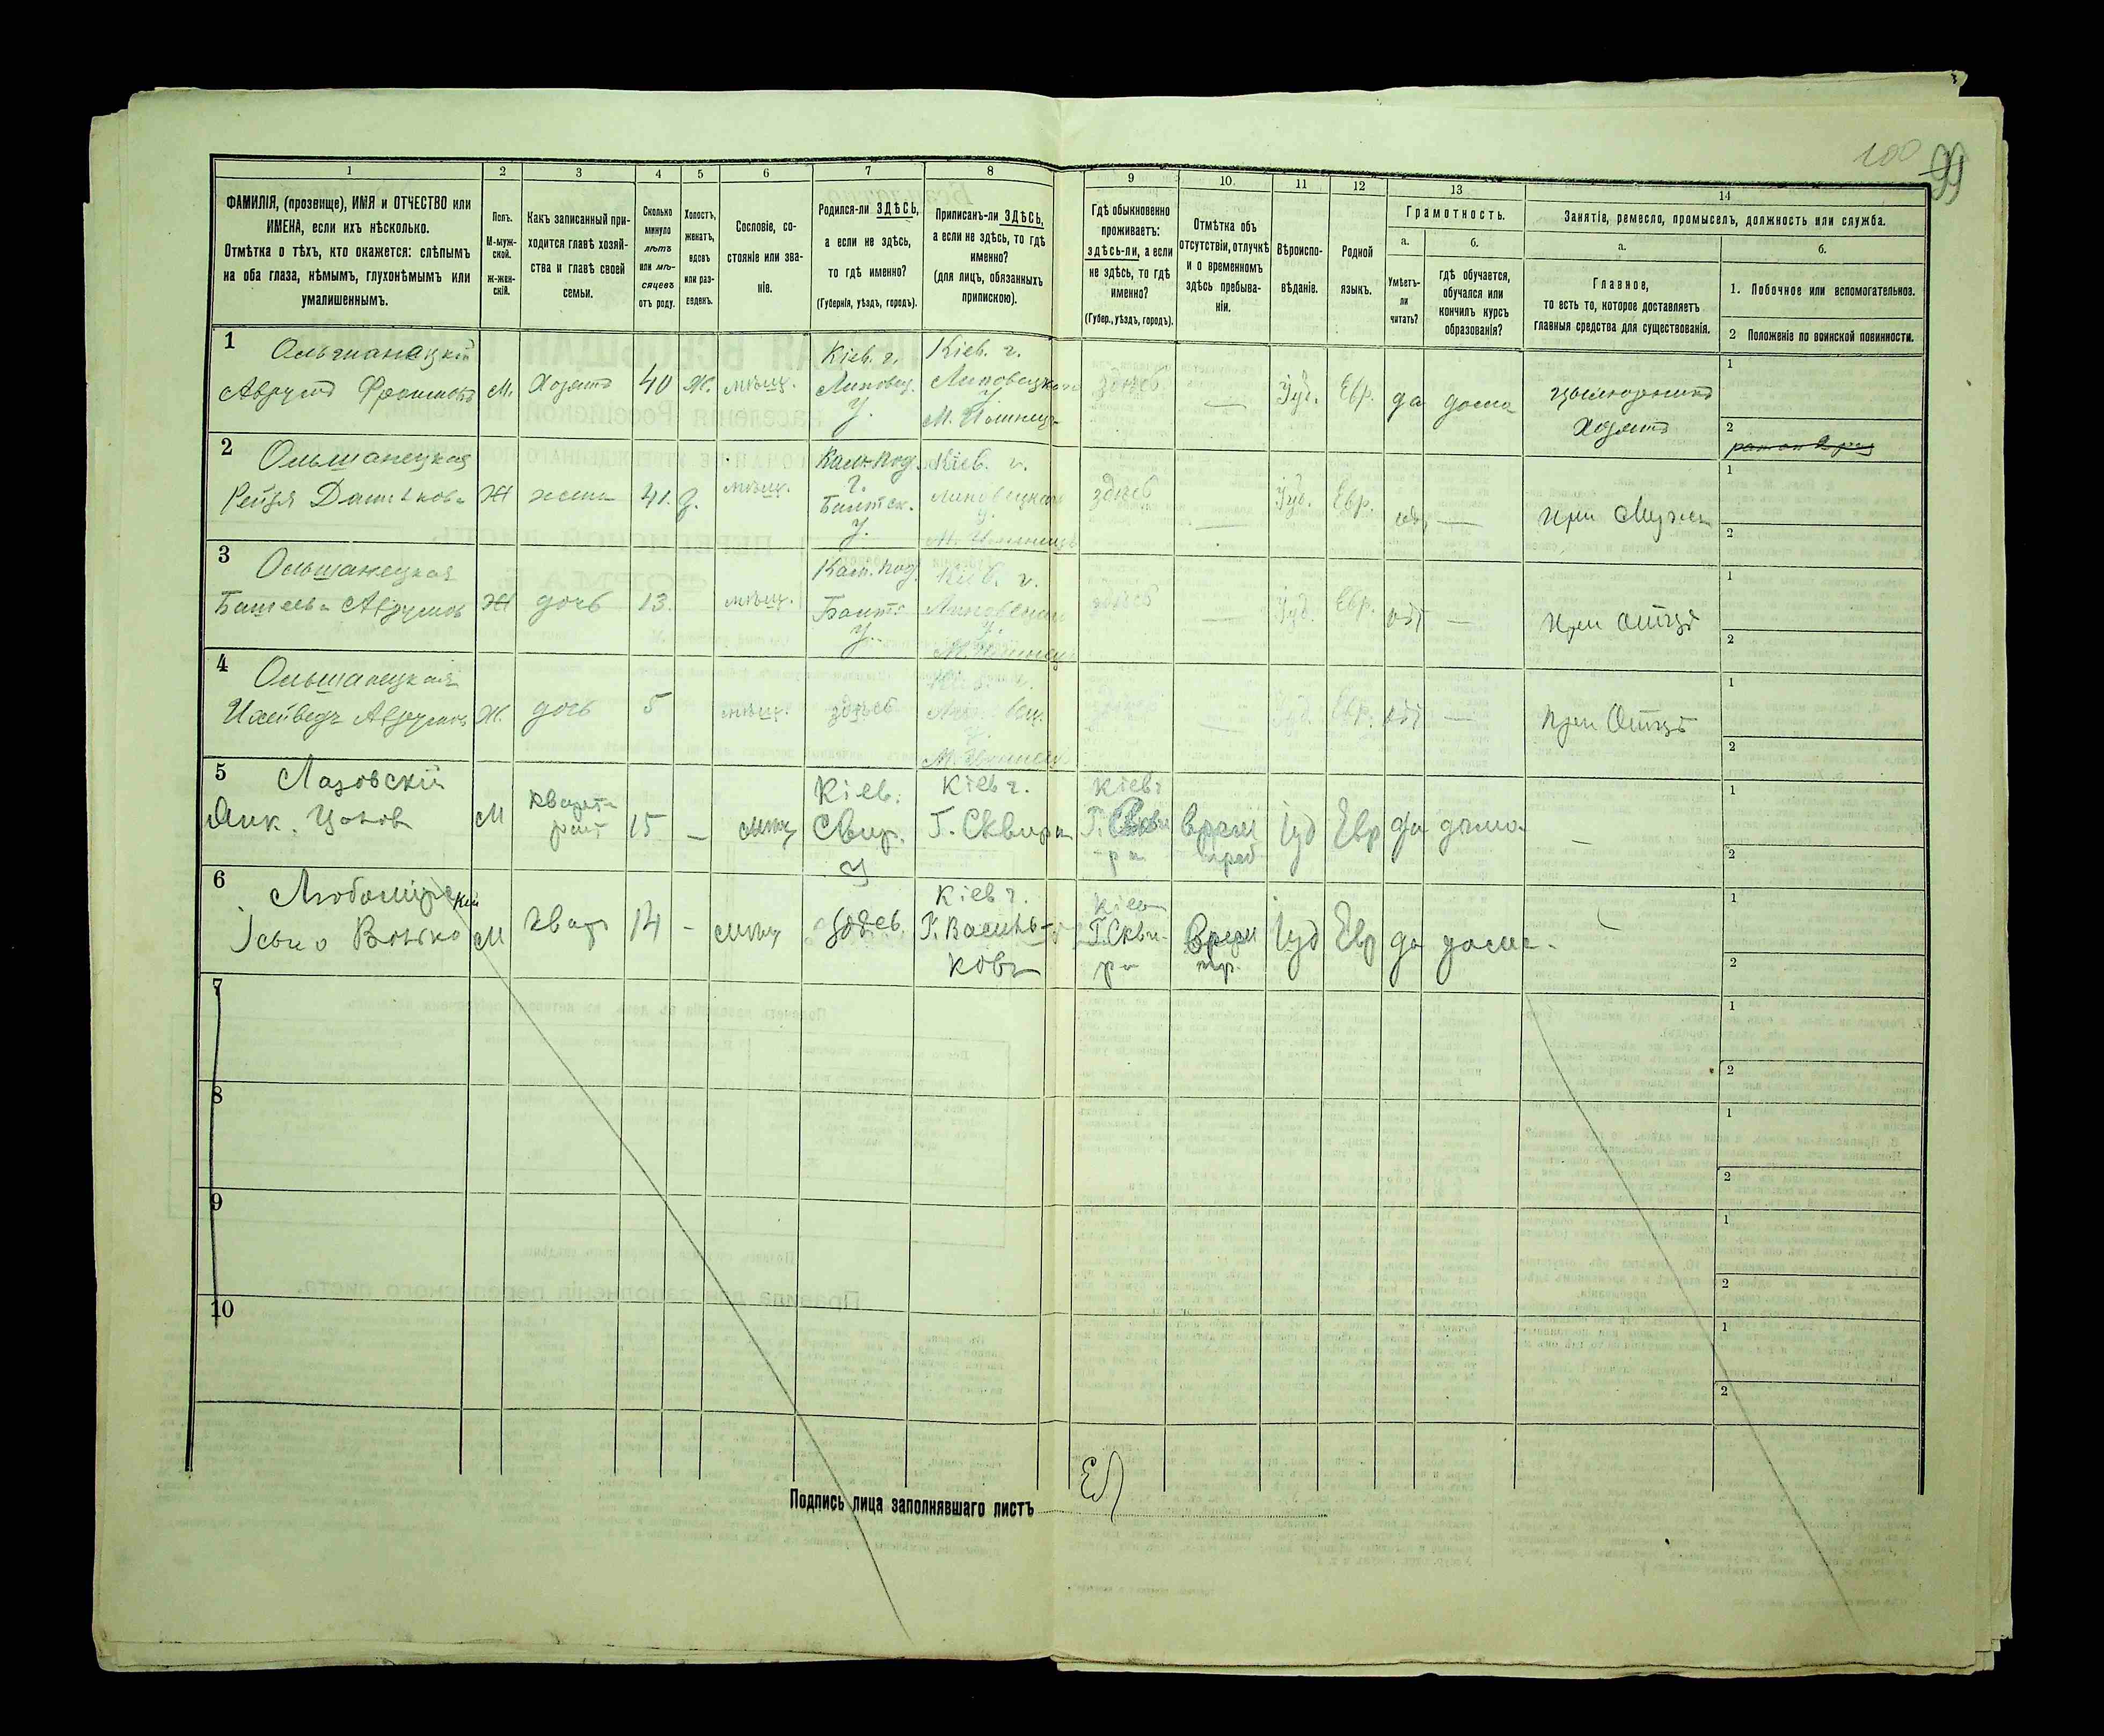 100
99
1
2
3
4
5
6
7
8
9
10.
11
12
13
14
ФАМИЛІЯ, (прозвище), ИМЯ и ОТЧЕСТВО или
ИМЕНА, если ихъ нѣсколько.
Отмѣтка о тѣхъ, кто окажется: слѣпымъ
на оба глаза, нѣмымъ, глухонѣмымъ или
умалишеннымъ.
Полъ.
М-муж-
ской.
ж-жен-
скій.
Какъ записанный при-
ходится главѣ хозяй-
ства и главѣ своей
семьи.
Сколько
минуло
лѣтъ
или мѣ-
сяцевъ
отъ роду.
Холостъ,
женатъ,
вдовъ
или раз-
веденъ.
Сословіе, со-
стояніе или зва-
ніе.
Родился-ли ЗДѢСЬ,
а если не здѣсь,
то гдѣ именно?
(Губернія, уѣздъ, городъ).
Приписанъ-ли ЗДѢСЬ,
а если не здѣсь, то гдѣ
именно?
(для лицъ, обязанныхъ
припискою).
Гдѣ обыкновенно
проживаетъ:
здѣсь-ли, а если
не здѣсь, то гдѣ
именно?
(Губер., уѣздъ, городъ).
Отмѣтка объ
отсутствіи, отлучкѣ
и о временномъ
здѣсь пребыва-
ніи.
Вѣроиспо-
вѣданіе.
Родной
языкъ.
Грамотность.
а.
Умѣетъ-
ли
читать?
б.
гдѣ обучается,
обучался или
кончилъ курсъ
образованія?
Занятіе, ремесло, промыселъ, должность или служба.
а.
Главное,
то есть то, которое доставляетъ
главныя средства для существованія.
б.
1. Побочное или вспомогательное.
2 Положеніе по воинской повинности.
1
Ольшанецкій
Аврумъ
М.
Хозяинъ
40
Ж.
мѣщ.
Кіев. г.
Липовец.
У.
Кіев. г.
Липовецкаго
У.
здѣсь
—
Іуд.
Евр.
да
дома
Хозяинъ
1
2
2
Ольшанецкая
Рейзя
Ж
жена
41.
З.
мѣщ.
Кам. Под.
г.
Балтск.
У.
Кіев. г.
Липовецкаго
У.
здѣсь
—
Іуд.
Евр.
—
при Мужѣ
1
2
3
Ольшанецкая
Ж
дочь
13.
мѣщ.
Кам. Под.
Балтс
У.
Кіев. г.
У.
здѣсь
—
Іуд.
Евр.
—
при отцѣ
1
2
4
Ольшанецкая
Ж.
дочь
5
мѣщ.
здѣсь
—
Іуд.
Евр.
—
при Отцѣ
1
2
5
Лазовскій
М
кварти-
рант
15
—
мѣщ
Кіев.
Сквир.
У
Кіев г.
Г. Сквира
Кіев г
Г. Скви
ра
врем
преб
Іуд
Евр
да
дома
—
1
2
6
Любомірскій
М
квар
14
-
мѣщ
здѣсь
Кіев г.
Г. Василь-
ковъ
Кіев
Г. Скви-
ра
Врем
пр.
Іуд
Евр
да
дома
1
2
7
1
2
8
1
2
9
1
2
10
1
2
Подпись лица заполнявшаго листъ